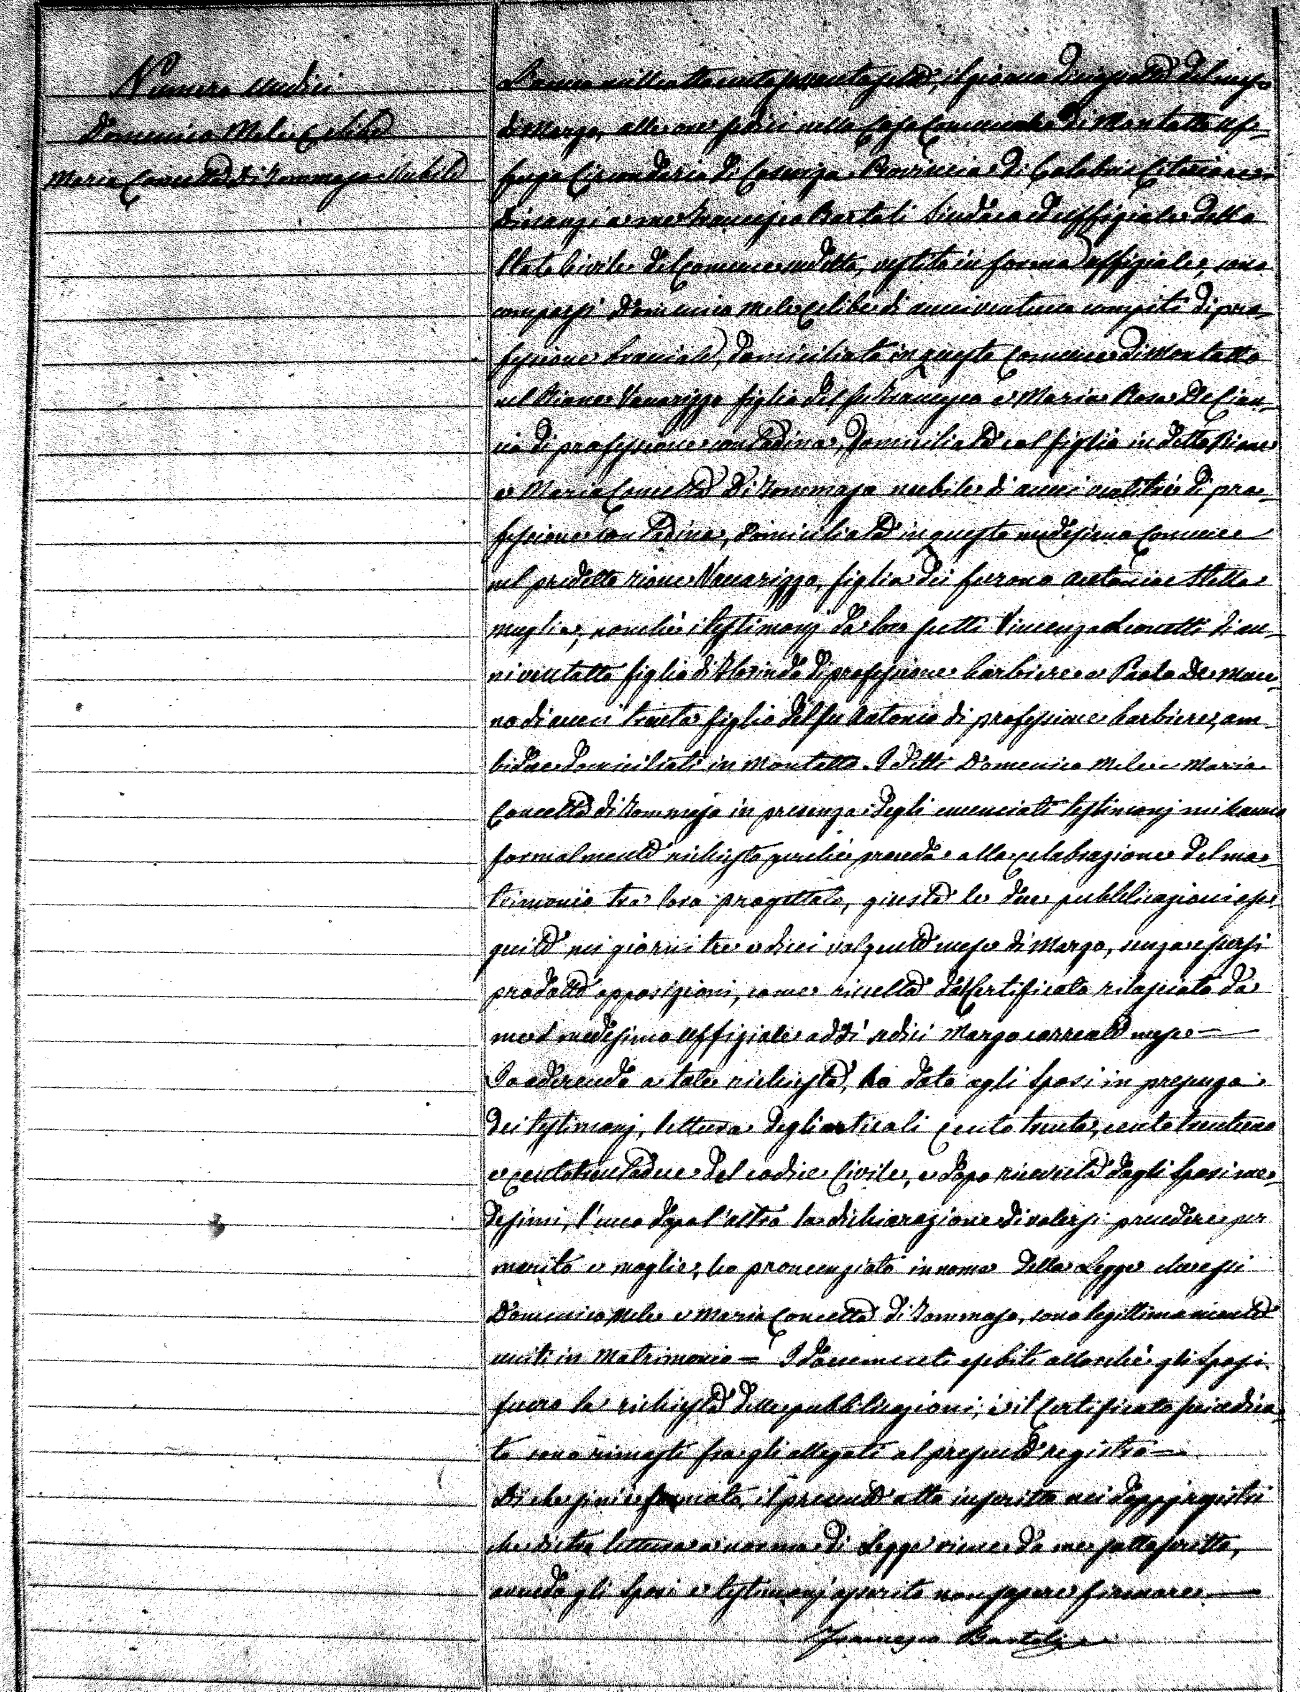 Numero undici
Domenico Mele Celibe
Maria Concetta di Tommaso Nubile
L'anno milleottocento sessantasette, il giorno diciassette del mese
di Marzo, alle ore sedici nella Casa Comunale di Montalto Uf-
fugo Circondario di Cosenza Provincia di Calabria Citeriore
Dinanzi a me Francesco Bartoli Sindaco ed uffiziale dello
Stato Civile del Comune suddetto, vestito in forma uffiziale, sono
comparsi Domenico Mele celibe di anni ventuno compiti di pro-
fessione bracciale, domiciliato in questo Comune di Montalto
nel Rione Vaccarizzo figlio del fu Francesco e Maria Rosa De
di professione contadina, domiciliata col figlio in detto Rione
e Maria Concetta di Tommaso nubile di anni ventitrè di pro-
fessione contadina, domiciliata in questo medesimo Comune
nel predetto rione Vaccarizzo, figlia dei furono Antonio e Stella
muglia, nonchè i testimonj da loro scelti Vincenzo di an-
ni ventotto figlio di Florindo di professione barbiere e Paolo De Mar-
co di anni trenta figlio del fu Antonio di professione barbiere, am-
bidue domiciliati in Montalto. I detti Domenico Mele e Maria
Concetta di Tommaso in presenza degli enunciati testimonj mi hanno
formalmente richiesto perchè proceda alla celebrazione del ma-
trimonio tra loro progettato, giusta le due pubblicazioni ese-
guite nei giorni tre e dieci volgente mese di Marzo, senza essersi
prodotte opposizioni, come risulta dal Certificato rilasciato da
me medesimo uffiziale addì sedici Marzo corrente mese —
Io aderendo a tale richiesta, ho dato agli sposi in presenza
dei testimonj, lettura degli articoli cento trenta, cento trentuno
e centotrentadue del codice Civile, e dopo ricevuta dagli sposi me-
desimi, l'uno dopo l'altro la dichiarazione di volersi prendere per
marito e moglie, ho pronunziato in nome della Legge che essi
Domenico Mele e Maria Concetta di Tommaso, sono legittimamente
uniti in Matrimonio — I documenti esibiti allorchè gli sposi
fecero la richiesta delle pubblicazioni, e il Certificato predica-
to sono rimasti fra gli allegati al presente registro —
Di che si è formato il presente atto inserito nei doppj registri
che dietro lettura a norma di Legge viene da me sottoscritto,
avendo gli sposi e testimonj asserito non sapere firmare —
Francesco Bartoli